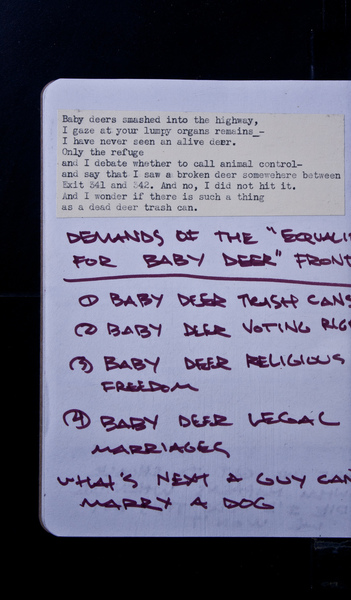 Baby deers smashed into the highway,
I gaze at your lumpy organs remains_-
I have never seen an alive deer.
Only the refuge
and I debate whether to call animal control-
and say that I saw a broken deer somewhere between
Exit 341 and 342. And no, I did not hit it.
And I wonder if there is such a thing
as a dead deer trash can.
DEMANDS OF THE "EQUALI
FOR BABY DEER" FRONT
① BABY DEER TRASH CANS
② BABY DEER VOTING RIG
③ BABY DEER RELIGIOUS
FREEDOM
④ BABY DEER LEGAL
MARRIAGES
WHAT'S NEXT A GUY CAN
MARRY A DOG